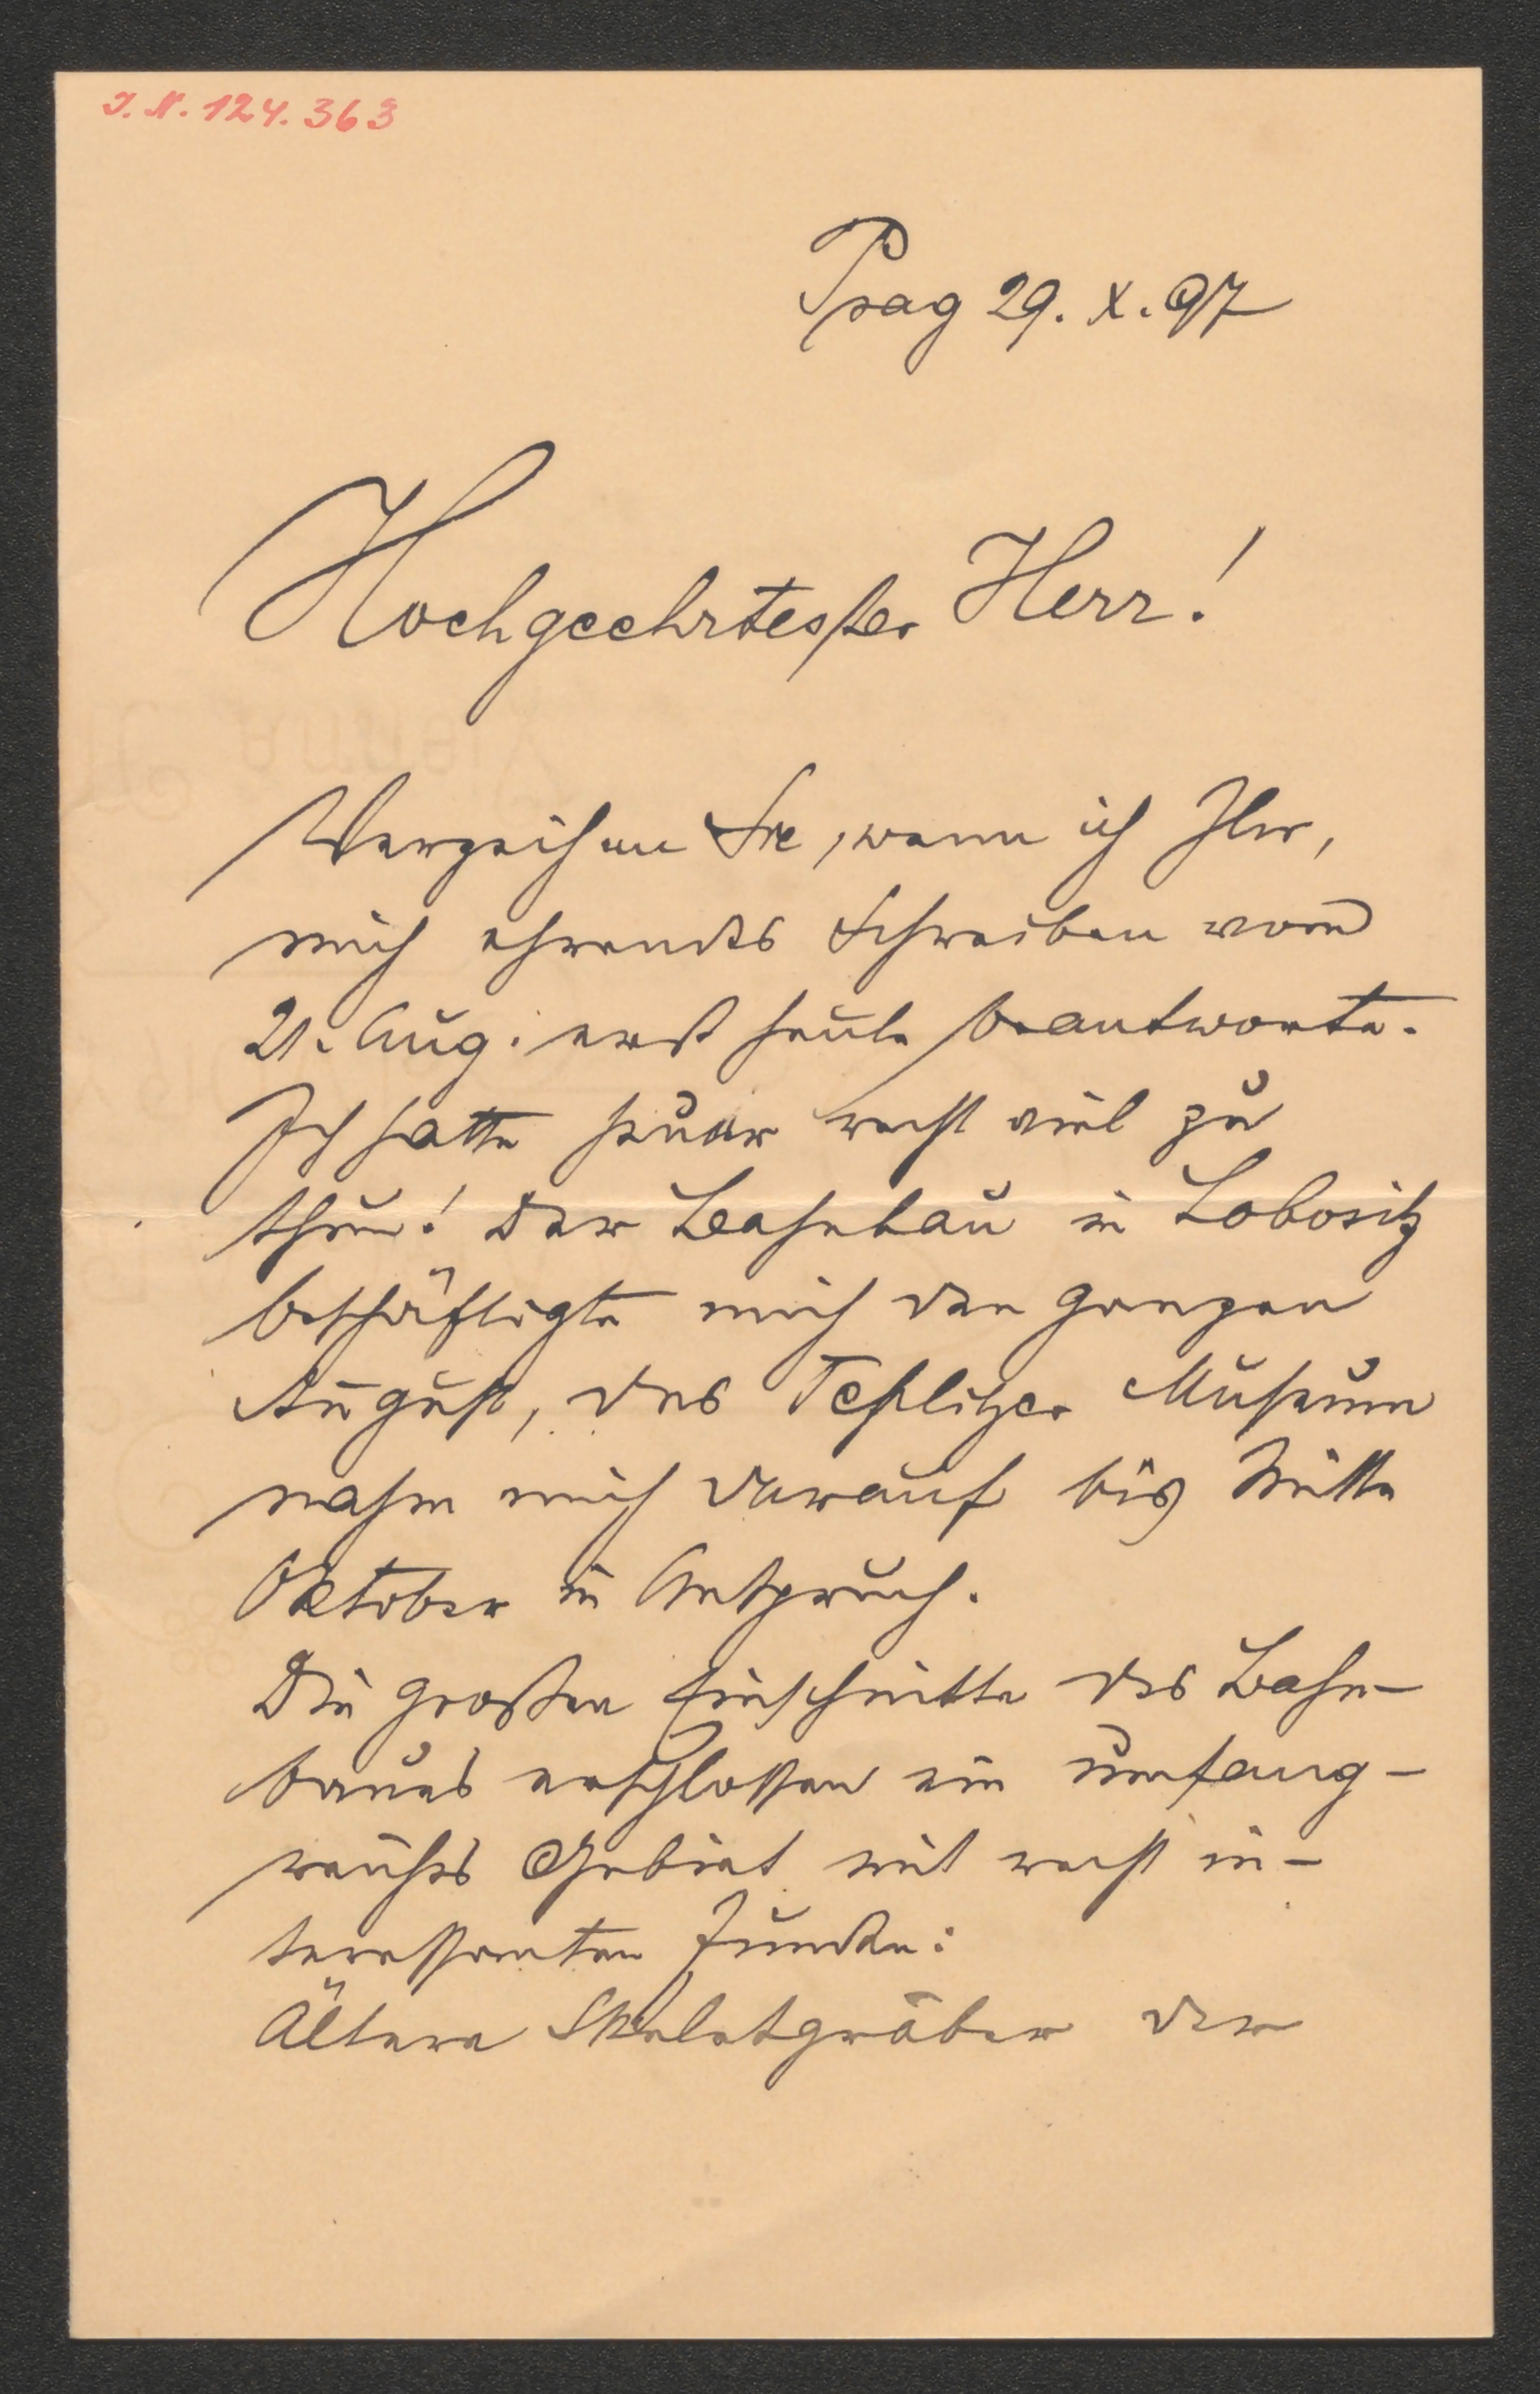 I. N. 124.363
Prag 29. X. 97
Hochgeehrtester Herr!
Verzeihen Sie, wenn ich Ihr,
mich ehrendes Schreiben vom
21. Aug. erst heute beantworte.
Ich hatte heuer recht viel zu
thun! Der Bahnbau in Lobositz
beschäftigte mich den ganzen
August, das Teplitzer Museum
nahm mich darauf bis Mitte
Oktober in Anspruch.
Die großen Einschnitte des Bahn-
baues erschlossen ein umfang-
reiches Gebiet mit recht in-
teressanten Funden:
Ältere Skeletgräber der